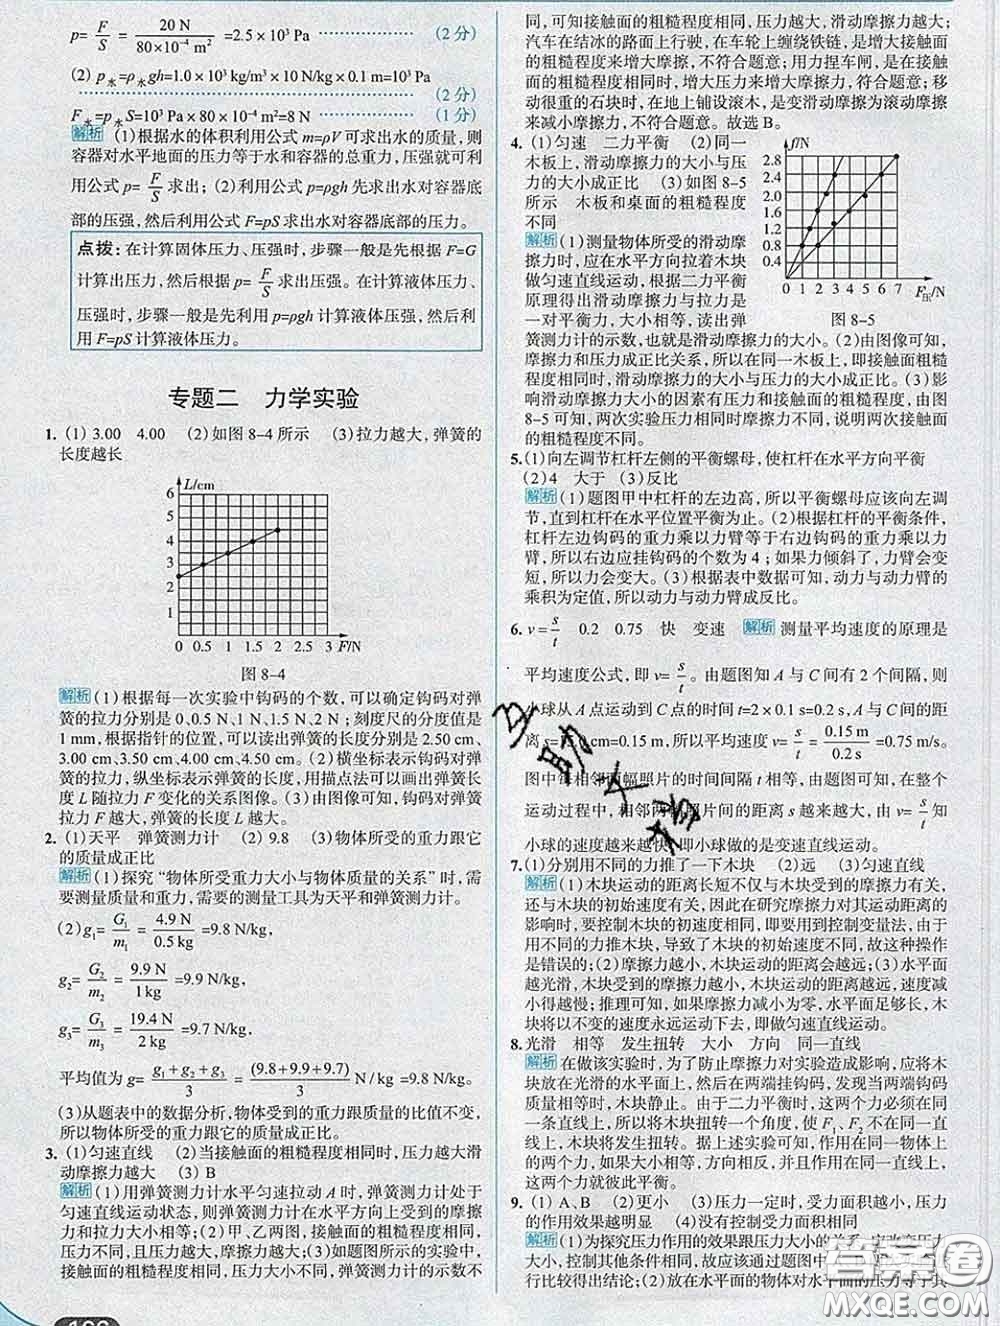 p=F/S=20 N/80×10⁻⁴ m²=2.5×10³ Pa ……………(2分)
(2) p水=ρ水gh=1.0×10³ kg/m³×10 N/kg×0.1 m=10³ Pa
……………(2分)
F水=p水S=10³ Pa×80×10⁻⁴ m²=8 N ……(1分)
解析 (1)根据水的体积利用公式 m=ρV 可求出水的质量,则
容器对水平地面的压力等于水和容器的总重力,压强就可利
用公式 p=F/S 求出;(2)利用公式 p=ρgh 先求出水对容器底
部的压强,然后利用公式 F=pS 求出水对容器底部的压力。
点拨:在计算固体压力、压强时,步骤一般是先根据 F=G
计算出压力,然后根据 p=F/S 计算出压强。在计算液体压力、
压强时,步骤一般是先利用 p=ρgh 计算液体压强,然后利
用 F=pS 计算液体压力。
专题二 力学实验
1. (1) 3.00 4.00 (2)如图 8-4 所示 (3)拉力越大,弹簧的
长度越长
L/cm
6
5
4
3
2
1
0 0.5 1 1.5 2 2.5 3 F/N
图 8-4
解析 (1)根据每一次实验中钩码的个数,可以确定钩码对弹
簧的拉力分别是 0、0.5 N、1 N、1.5 N、2 N;刻度尺的分度值是
1 mm,根据指针的位置,可以读出弹簧的长度分别是 2.50 cm、
3.00 cm、3.50 cm、4.00 cm、4.50 cm。(2)横坐标表示钩码对弹簧的
拉力,纵坐标表示弹簧的长度,用描点法可以画出弹簧的长
度 L 随拉力 F 变化的关系图像。(3)由图像可知,钩码对弹簧
拉力 F 越大,弹簧的长度 L 越大。
2. (1)天平 弹簧测力计 (2) 9.8 (3)物体所受的重力跟它
的质量成正比
解析 (1)探究“物体所受重力大小与物体质量的关系”时,需
要测量质量和重力,需要的测量工具为天平和弹簧测力计。
(2)g₁=G₁/m₁=4.9 N/0.5 kg=9.8 N/kg,
g₂=G₂/m₂=9.9 N/1 kg=9.9 N/kg,
g₃=G₃/m₃=19.4 N/2 kg=9.7 N/kg,
平均值为 g=(g₁+g₂+g₃)/3=(9.8+9.9+9.7)/3 N/kg=9.8 N/kg。
(3)从题表中的数据分析,物体受到的重力跟质量的比值不变,
所以物体所受的重力跟它的质量成正比。
3. (1)匀速直线 (2)当接触面的粗糙程度相同时,压力越大滑
动摩擦力越大 (3) B
解析 (1)用弹簧测力计水平匀速拉动 A 时,弹簧测力计处于
匀速直线运动状态,则弹簧测力计在水平方向上受到的摩擦
力和拉力大小相等;(2)甲、乙两图,接触面的粗糙程度相同,
压力不同,且压力越大,摩擦力越大;(3)如题图所示的实验中,
接触面的粗糙程度相同,压力大小不同,弹簧测力计的示数不
同,可知接触面的粗糙程度相同,压力越大,滑动摩擦力越大;
汽车在结冰的路面上行驶,在车轮上缠绕铁链,是增大接触面
的粗糙程度来增大摩擦,不符合题意;用力捏车闸,是在接触面
的粗糙程度相同时,增大压力来增大摩擦力,符合题意;移
动很重的石块时,在地上铺设滚木,是变滑动摩擦为滚动摩擦
来减小摩擦力,不符合题意。故选 B。
4. (1)匀速 二力平衡 (2)同一
木板上,滑动摩擦力的大小与压
力的大小成正比 (3)如图 8-5
所示 木板和桌面的粗糙程度
不同
f/N
2.8
2.4
2.0
1.6
1.2
0.8
0.4
0 1 2 3 4 5 6 7 F压/N
图 8-5
解析 (1)测量物体所受的滑动摩
擦力时,应在水平方向拉着木块
做匀速直线运动,根据二力平衡
原理得出滑动摩擦力与拉力是
一对平衡力,大小相等,读出弹
簧测力计的示数,也就是滑动摩擦力的大小。(2)由图像可知,
摩擦力和压力成正比关系,所以在同一木板上,即接触面粗糙
程度相同时,滑动摩擦力的大小与压力的大小成正比。(3)影
响滑动摩擦力大小的因素有压力和接触面的粗糙程度,由图
8-5 可知,两次实验压力相同时摩擦力不同,说明两次接触面
的粗糙程度不同。
5. (1)向左调节杠杆左侧的平衡螺母,使杠杆在水平方向平衡
(2) 4 大于 (3)反比
解析 (1)题图甲中杠杆的左边高,所以平衡螺母应该向左调
节,直到杠杆在水平位置平衡为止。(2)根据杠杆的平衡条件,
杠杆左边钩码的重力乘以力臂等于右边钩码的重力乘以力
臂,所以右边应挂钩码的个数为 4;如果力倾斜了,力臂会变
短,所以力会变大。(3)根据表中数据可知,动力与动力臂的
乘积为定值,所以动力与动力臂成反比。
6. v=s/t 0.2 0.75 快 变速 解析 测量平均速度的原理是
平均速度公式,即 v=s/t。由题图知 A 与 C 间有 2 个间隔,则
小球从 A 点运动到 C 点的时间 t=2×0.1 s=0.2 s,A 与 C 间的距
离 s=15 cm=0.15 m,所以平均速度 v=s/t=0.15 m/0.2 s=0.75 m/s。
图中每相邻两幅照片的时间间隔 t 相等,由题图可知,在整个
运动过程中,相邻两照片间的距离 s 越来越大,由 v=s/t 知
小球的速度越来越快,即小球做的是变速直线运动。
7. (1)分别用不同的力推了一下木块 (2)远 (3)匀速直线
解析 (1)木块运动的距离长短不仅与木块受到的摩擦力有关,
还与木块的初始速度有关,因此在研究摩擦力对其运动距离的
影响时,要控制木块的初始速度相同,即要用到控制变量法,由于
用不同的力推木块,导致了木块的初始速度不同,故这种操作
是错误的;(2)摩擦力越小,木块运动的距离会越远;(3)水平面
越光滑,木块受到的摩擦力越小,木块运动的距离越远,速度减
小得越慢;推理可知,如果摩擦力减小为零,水平面足够长,木
块将以不变的速度永远运动下去,即做匀速直线运动。
8. 光滑 相等 发生扭转 大小 方向 同一直线
解析 在做该实验时,为了防止摩擦力对实验造成影响,应将木
块放在光滑的水平面上,然后在两端挂钩码,发现当两端钩码
质量相等时,木块静止。由于二力平衡时,这两个力必须在同
一条直线上,所以将木块扭转一个角度,使 F₁、F₂ 不在同一直
线上,木块将发生扭转。据上述实验可知,作用在同一物体上
的两个力,如果大小相等、方向相反,并且作用在同一直线上,
这两个力就彼此平衡。
9. (1) A、B (2)更小 (3)压力一定时,受力面积越小,压力
的作用效果越明显 (4)没有控制受力面积相同
解析 (1)为探究压力作用的效果跟压力大小的关系,应改变压
力大小,控制其他条件相同,故应通过题图中
行比较得出结论;(2)放在水平面的物体对水平面的压力等于其
互助文档
答案圈
MXQE.COM